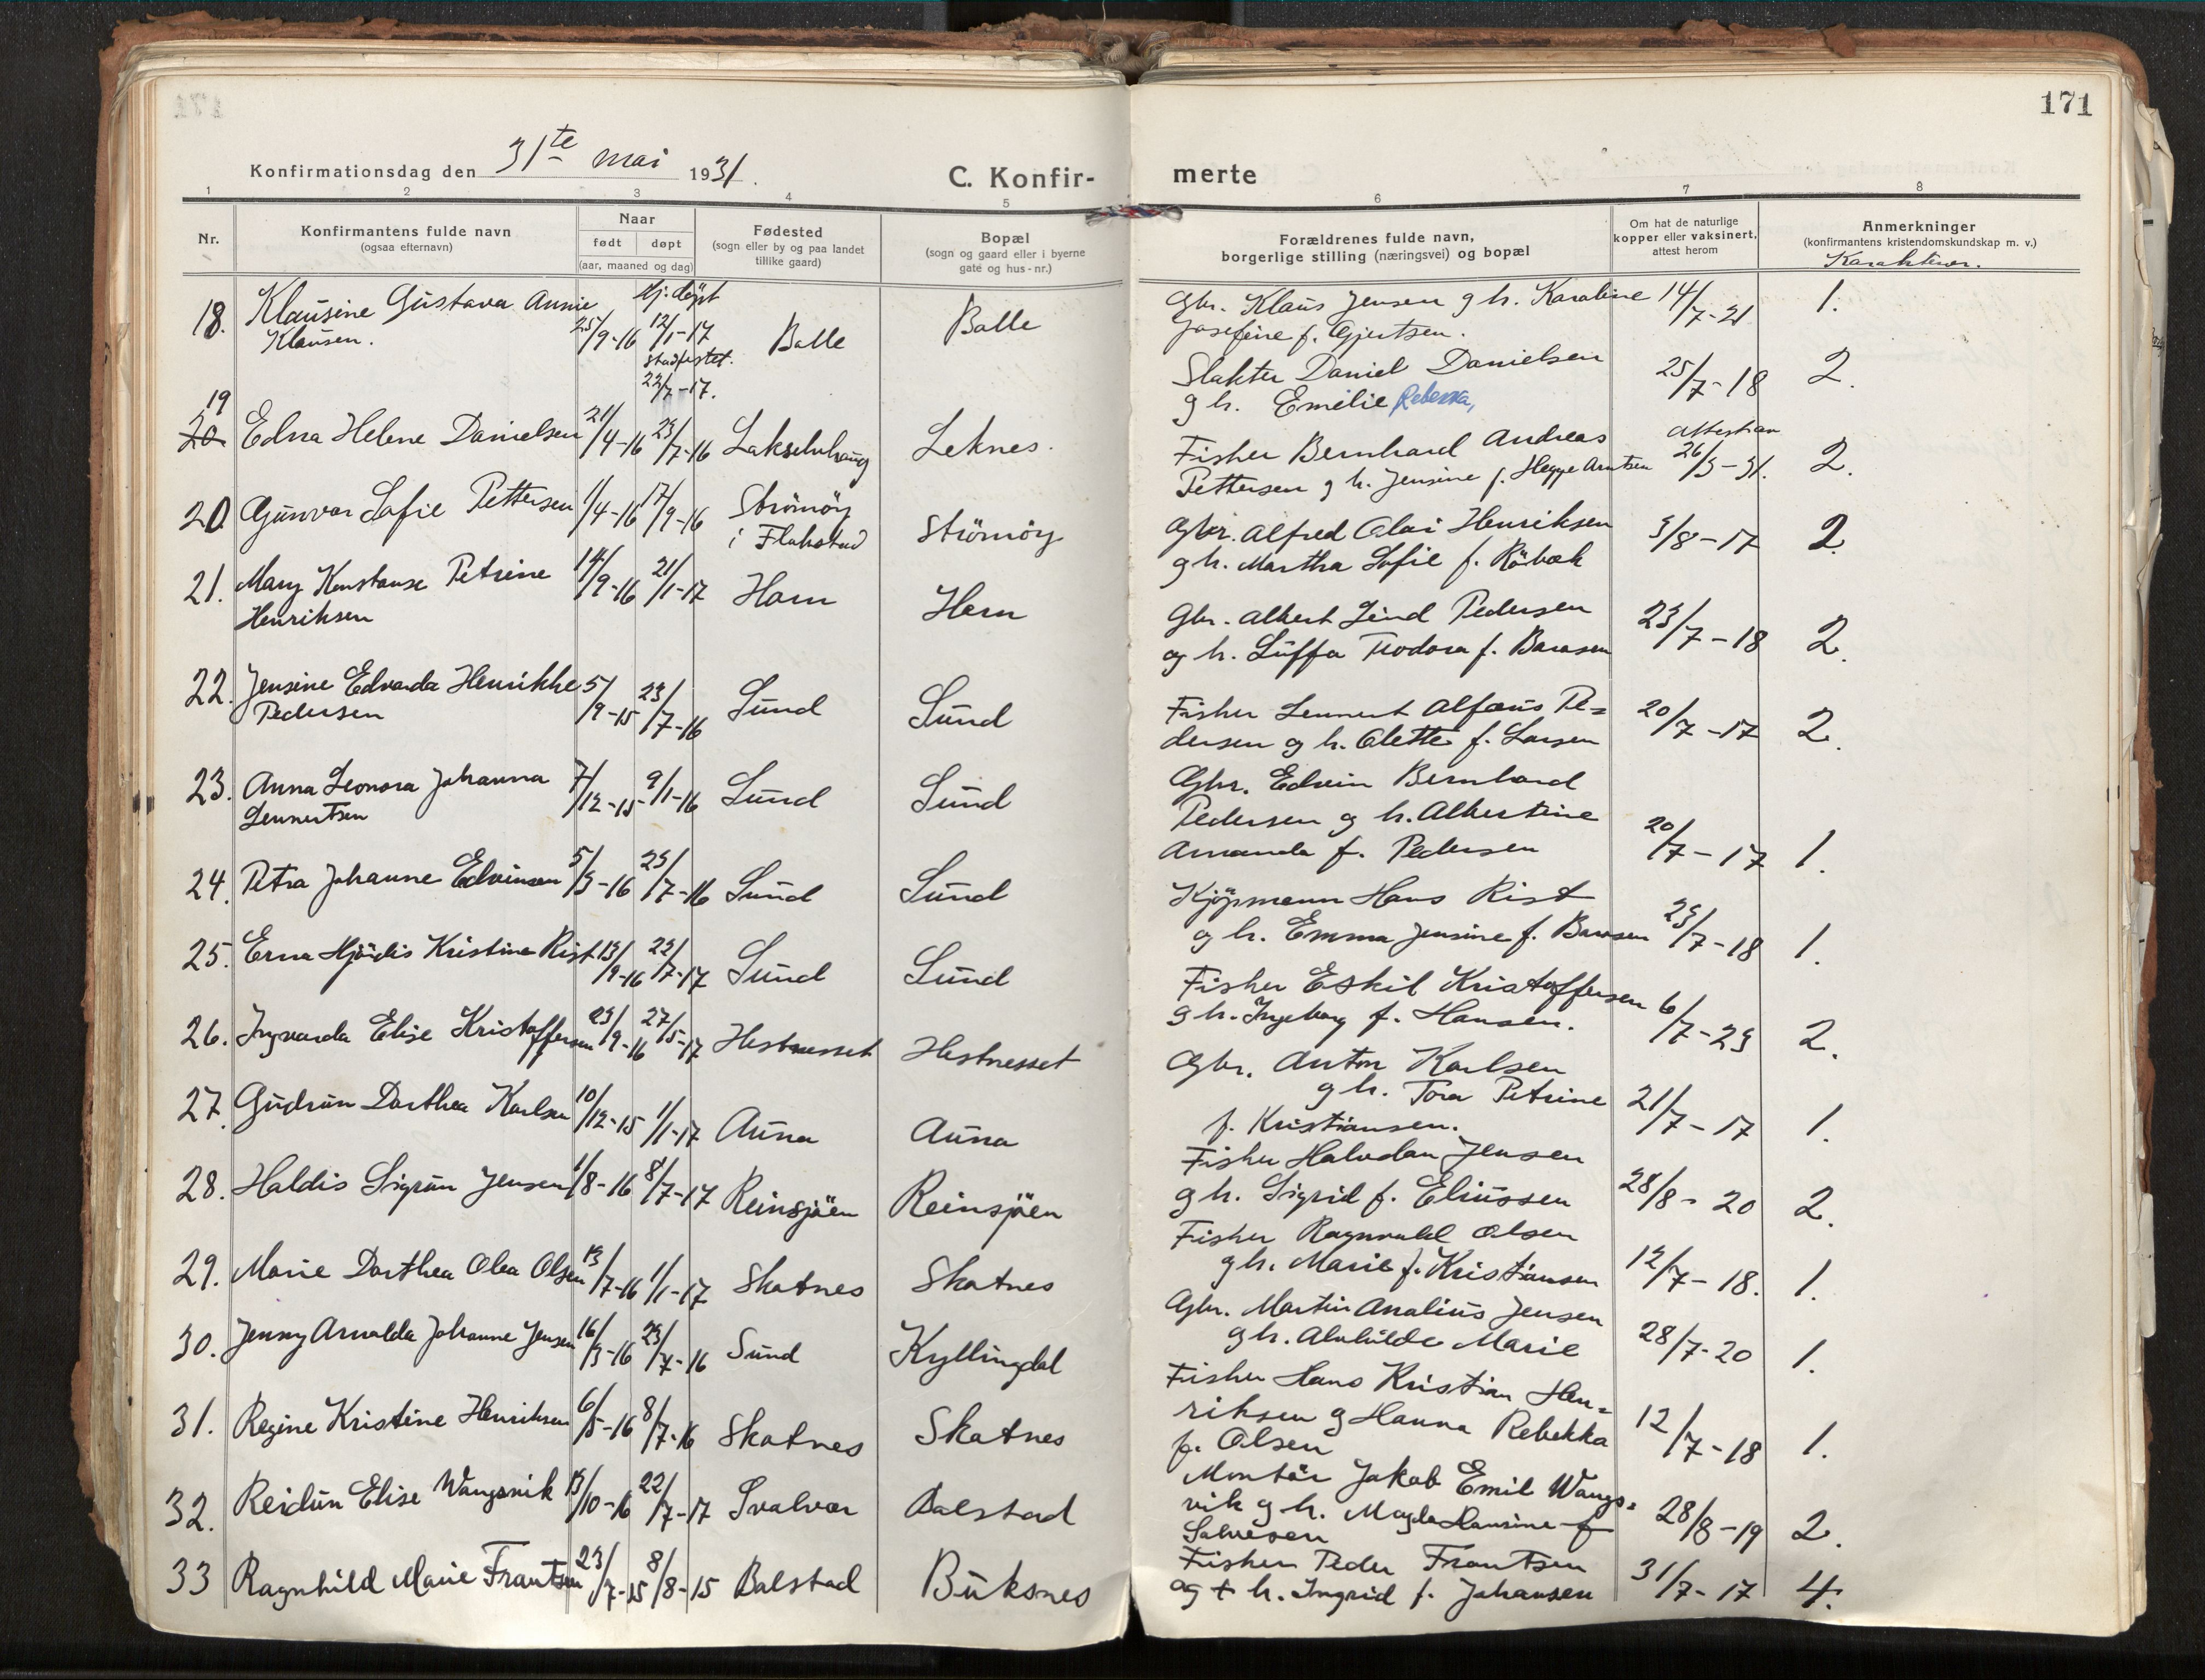 171
Konfirmationsdag den 31te mai 1931.
C. Konfir-
merte
1 2 3 4 5 6 7 8
Nr.
Konfirmantens fulde navn
(ogsaa efternavn)
Naar
født døpt
(aar, maaned og dag)
Fødested
(sogn eller by og paa landet
tillike gaard)
Bopæl
(sogn og gaard eller i byerne
gate og hus-nr.)
Forældrenes fulde navn,
borgerlige stilling (næringsvei) og bopæl
Om hat de naturlige
kopper eller vaksinert,
attest herom
Anmerkninger
(konfirmantens kristendomskundskap m. v.)
Karakterer.
18. Klausine Gustava Annie
Klausen.
25/9-16
hj. døpt
12/1-17
stadfestet.
22/7-17.
Balle Balle
Gbr. Klaus Jensen g h. Karoline
Josefine f. Gjertsen.
14/7-21 1.
19
20 Edna Helene Danielsen 21/4-16 23/7-16 Lakselvhaug Leknes.
Slakter Daniel Danielsen
g h. Emelie Rebekka,
25/7-18 2.
20. Gunvor Sofie Pettersen 1/4-16 17/9-16 Strömöy
i Flakstad
Strömöy
Fisker Bernhard Andreas
Pettersen g h. Jensine f. Hegge Arntsen
attest av
26/3-31. 2.
21. Mary Konstanse Petrine
Henriksen
14/9-16 21/1-17 Horn Horn
Gbr. Alfred Olai Henriksen
g h. Martha Sofie f. Röbak
3/8-17 2.
22. Jensine Edvarda Henrikke
Pedersen
5/9-15 23/7-16 Sund Sund
Gbr. Albert Lind Pedersen
og h. Luffa Teodora f. Baresen
23/7-18 2.
23. Anna Leonora Johanna
Lennertsen
7/12-15 9/1-16 Sund Sund
Fisker Lennert Alfæus Pe=
dersen g h. Olette f. Larsen
20/7-17 2.
24. Petra Johanne Edvinsen 5/3-16 23/7-16 Sund Sund
Gbr. Edvin Bernhard
Pedersen g h. Albertine
Amanda f. Pedersen
20/7-17 1.
25. Erna Hjördis Kristine Rist 13/9-16 22/7-17 Sund Sund
Kjöpmann Hans Rist
g h. Emma Jensine f. Baresen
23/7-18 1.
26. Ingvarda Elise Kristoffersen 23/9-16 27/5-17 Hestnesset Hestnesset
Fisker Eskil Kristoffersen
g h. Ingeborg f. Hansen.
6/7-23 2.
27. Gudrun Dorthea Karlsen 10/12-15 1/1-17 Auna Auna
Gbr. Anton Karlsen
g h. Tora Petrine
f. Kristiansen.
21/7-17 1.
28. Haldis Sigrun Jensen 1/8-16 8/7-17 Reinsjöen Reinsjöen
Fisker Halvdan Jensen
g h. Sigrid f. Eliussen
28/8-20 2.
29. Marie Dorthea Olea Olsen 13/7-16 1/1-17 Skotnes Skotnes
Fisker Ragnvald Olsen
g h. Marie f. Kristiansen
12/7-18. 1.
30. Jenny Arnolda Johanne Jensen 16/3-16 23/7-16 Sund Kyllingdal
Gbr. Martin Analius Jensen
g h. Alvhilde Marie
28/7-20 1.
31. Regine Kristine Henriksen 6/5-16 8/7-16 Skotnes Skotnes
Fisker Hans Kristian Hen=
riksen g Hanna Rebekka
f. Olsen
12/7-18 1.
32. Reidun Elise Wangsvik 13/10-16 22/7-17 Svolvær Balstad
Montör Jakob Emil Wangs=
vik g h. Magda Hansine f
Salvesen
28/8-19 2.
33 Ragnhild Marie Frantsen 23/7-15 8/8-15 Balstad Buksnes
Fisker Peder Frantsen
og + h. Ingrid f. Johansen
31/7-17 4.